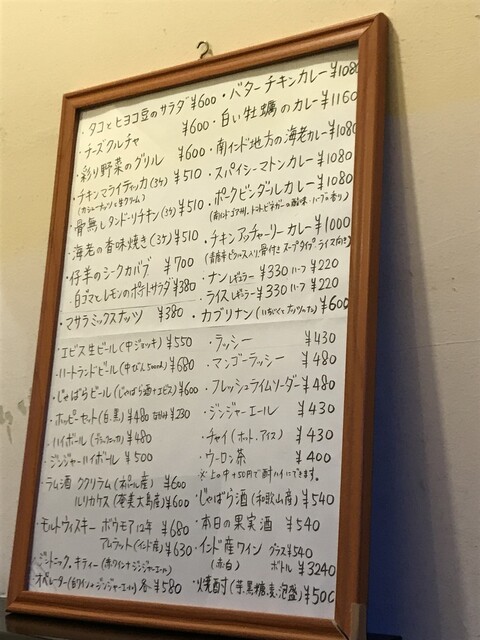 ・タコとヒヨコ豆のサラダ ¥600
・チーズクルチャ ¥600
・彩り野菜のグリル ¥600
・チキンマライティッカ(3ヶ) ¥510
(カシューナッツと生クリーム)
・骨無しタンドーリチキン(3ヶ) ¥510
・海老の香味焼き(3ヶ) ¥510
・仔羊のシークカバブ ¥700
・白ゴマとレモンのポテトサラダ ¥380
・マサラミックスナッツ ¥380
・バターチキンカレー ¥1080
・白い牡蠣のカレー ¥1160
・南インド地方の海老カレー ¥1080
・スパイシーマトンカレー ¥1080
・ポークビンダールカレー ¥1080
・チキンアッチャーリーカレー ¥1000
・ナン レギュラー ¥330 ハーフ ¥220
・ライス レギラー ¥330 ハーフ ¥220
・カブリナン ¥600
・エビス生ビール(中ジョッキ) ¥550
・ハートランドビール(中びん500ml) ¥680
・じゃばらビール(じゃばら酒+エビス) ¥600
・ホッピーセット(白・黒) ¥480 ¥230
・ハイボール ¥480
・ジンジャーハイボール ¥500
・ラム酒 ククリラム(ネパール産) ¥600
ルリカケス(奄美大島産) ¥600
・モルトウィスキー ボウモア12年 ¥680
アムラット(インド産) ¥630
・ジントニック、キティー(赤ワイン+ジンジャーエール)
・オペレーター(白ワイン+ジンジャーエール) 各 ¥580
・ラッシー ¥430
・マンゴーラッシー ¥480
・フレッシュライムソーダー ¥480
・ジンジャーエール ¥430
・チャイ(ホット、アイス) ¥430
・ウーロン茶 ¥400
※上の中+50円で酎ハイにできます。
・じゃばら酒(和歌山産) ¥540
・本日の果実酒 ¥540
・インド産ワイン グラス¥540
(赤・白) ボトル ¥3240
・焼酎(芋、黒糖、麦、泡盛) ¥500